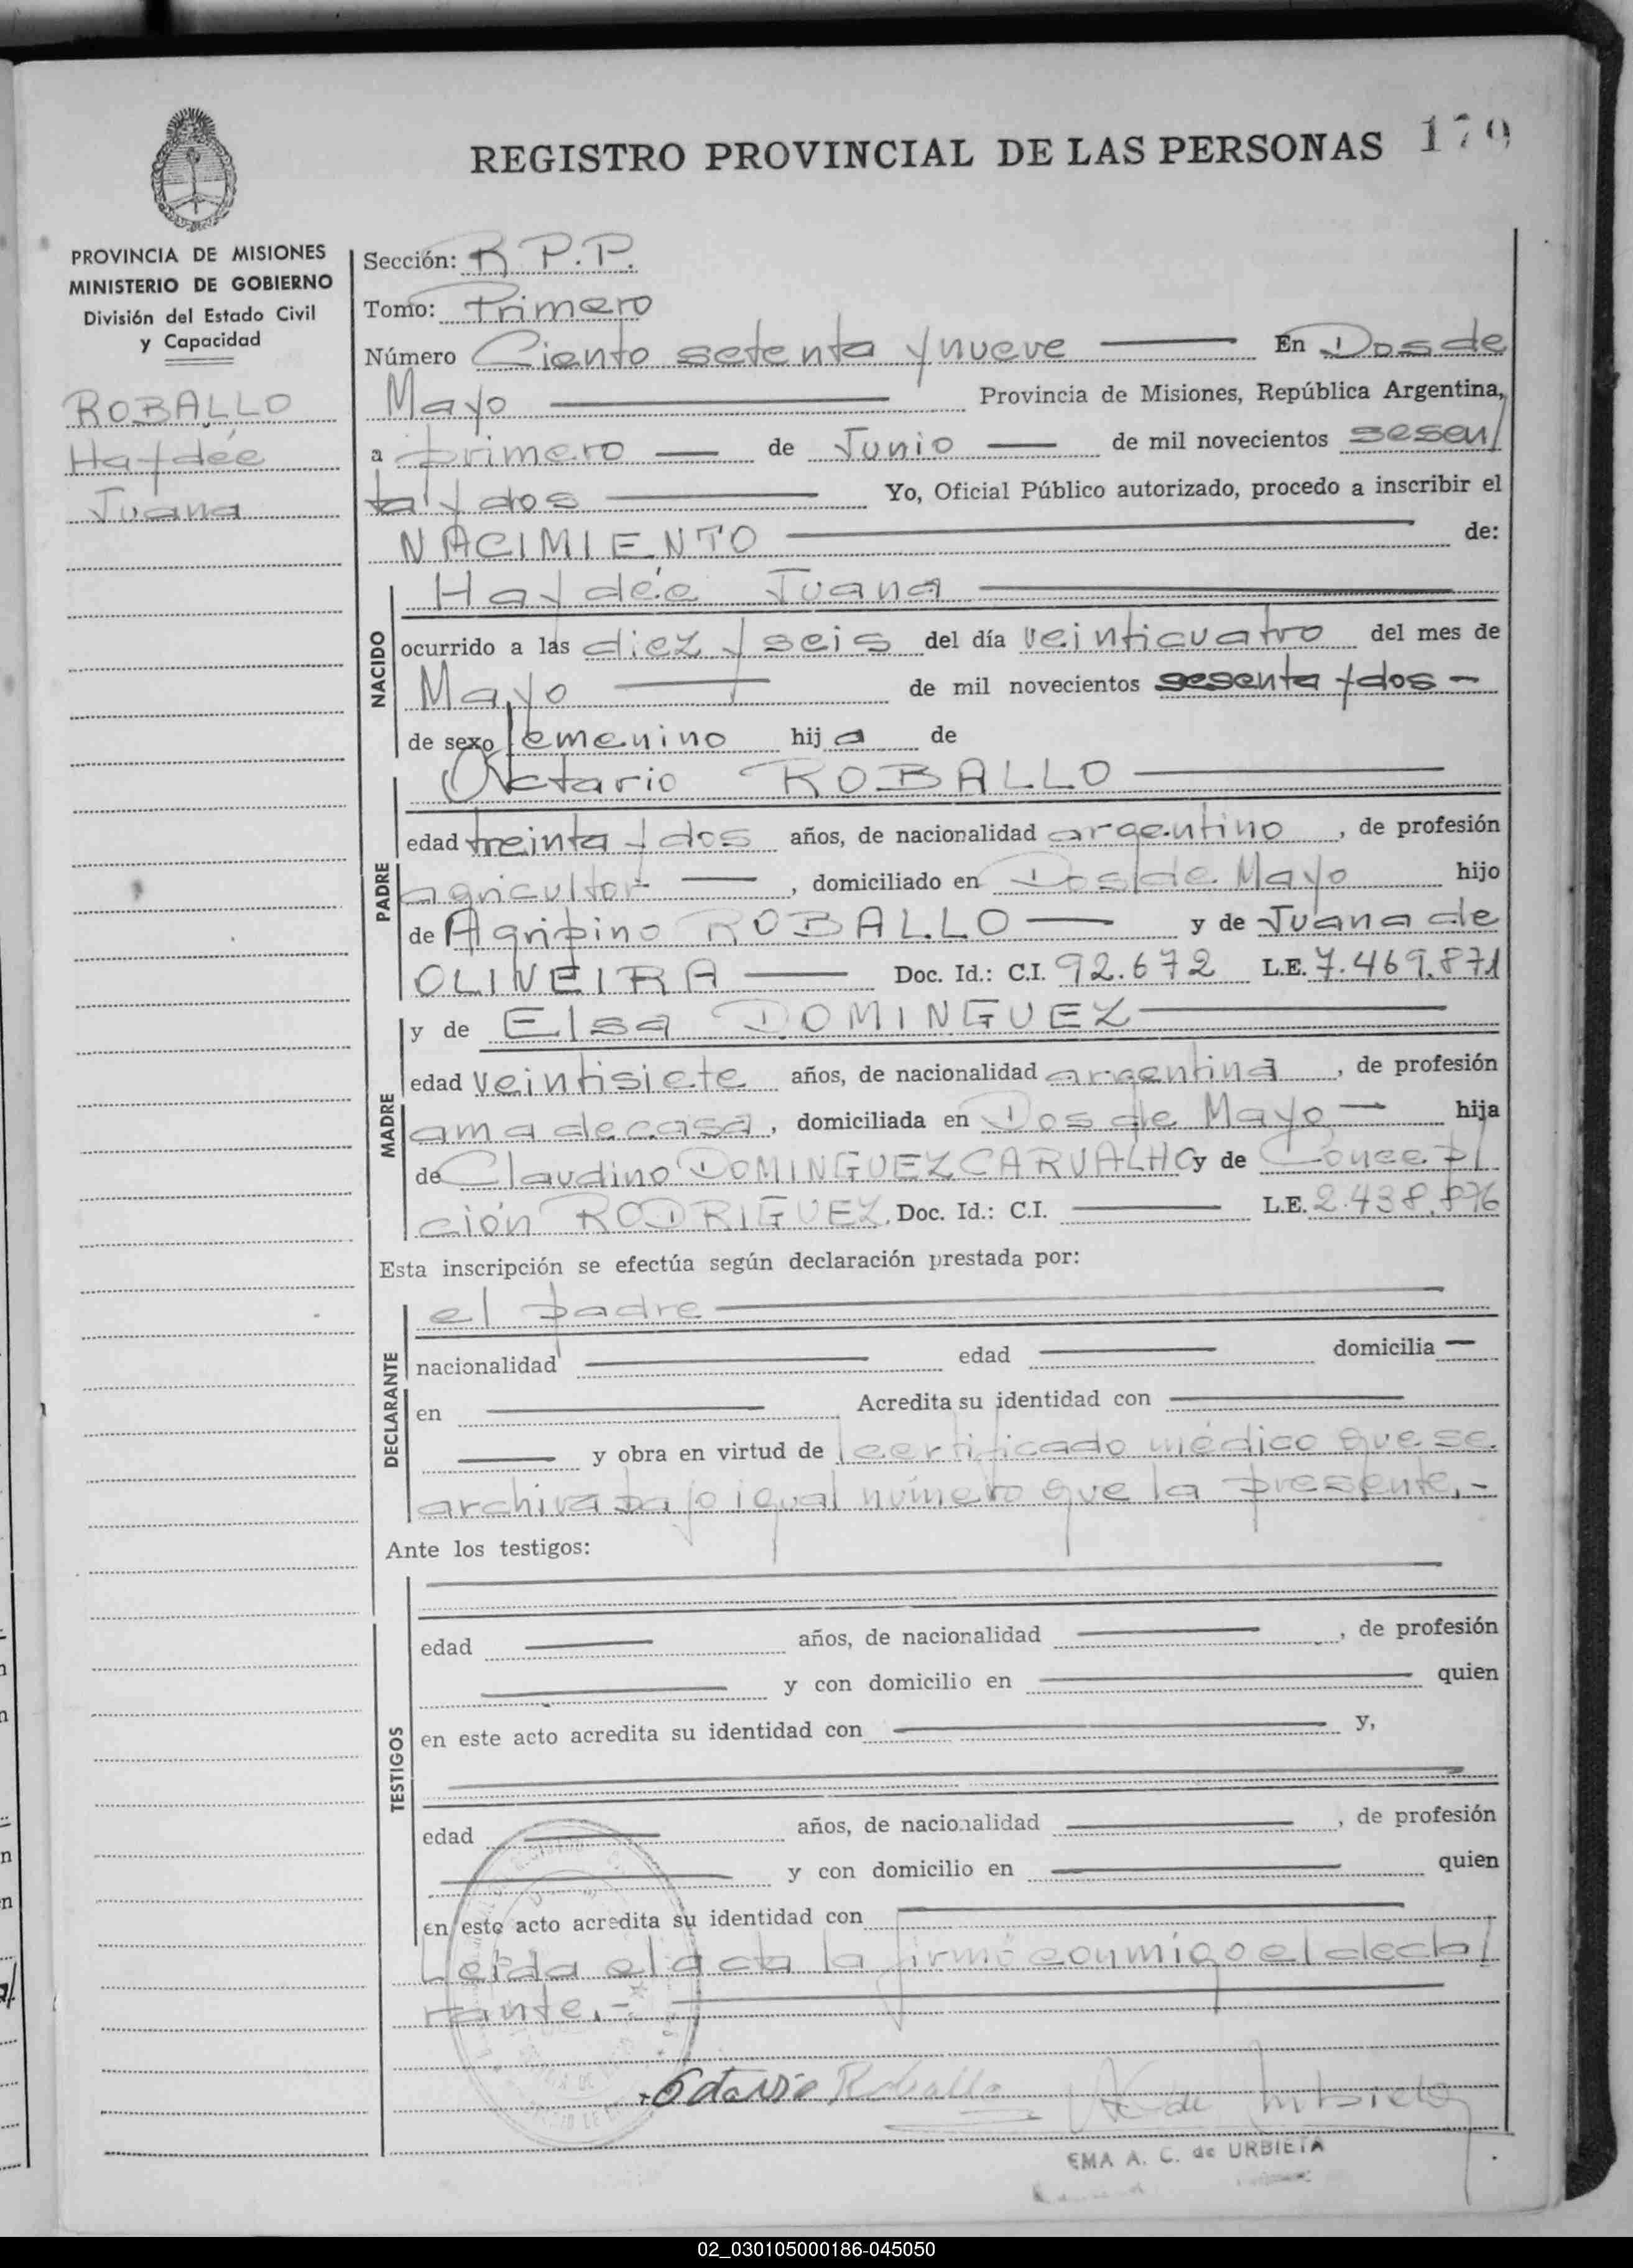 REGISTRO PROVINCIAL DE LAS PERSONAS 179
PROVINCIA DE MISIONES
MINISTERIO DE GOBIERNO
División del Estado Civil
y Capacidad
ROBALLO
Haydée
Juana
Sección: R.P.P.
Tomo: Primero
Número Ciento setenta y nueve En Dos de
Mayo Provincia de Misiones, República Argentina,
a primero de Junio de mil novecientos sesen/
ta y dos Yo, Oficial Público autorizado, procedo a inscribir el
NACIMIENTO de:
NACIDO
Haydée Juana
ocurrido a las diez y seis del día veinticuatro del mes de
Mayo de mil novecientos sesenta y dos -
de sexo femenino hija de
PADRE
Octavio ROBALLO
edad treinta y dos años, de nacionalidad argentino, de profesión
agricultor, domiciliado en Dos de Mayo hijo
de Agripino ROBALLO y de Juana de
OLIVEIRA Doc. Id.: C.I. 92.672 L.E. 7.469.871
MADRE
y de Elsa DOMINGUEZ
edad veintisiete años, de nacionalidad argentina, de profesión
ama de casa, domiciliada en Dos de Mayo hija
de Claudino DOMINGUEZ CARVALHO y de Concep/
ción RODRIGUEZ. Doc. Id.: C.I. L.E. 2.438.876
Esta inscripción se efectúa según declaración prestada por:
DECLARANTE
el padre
nacionalidad edad domicilia
en Acredita su identidad con
y obra en virtud de certificado médico que se
archiva bajo igual número que la presente.-
Ante los testigos:
TESTIGOS
edad años, de nacionalidad , de profesión
y con domicilio en quien
en este acto acredita su identidad con y,
edad años, de nacionalidad , de profesión
y con domicilio en quien
en este acto acredita su identidad con
Leída el acta la firmó conmigo el decla/
rante.-
Otavio Roballo
EMA A. C. de URBIETA
02_030105000186-045050